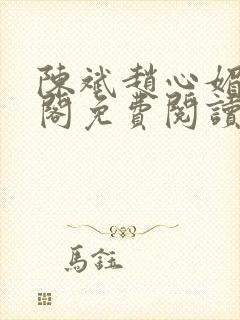 陳斌趙心媚
閣免費閱讀
馬鈺